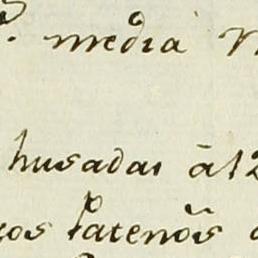 media
husadas à 12
cos Patenõs